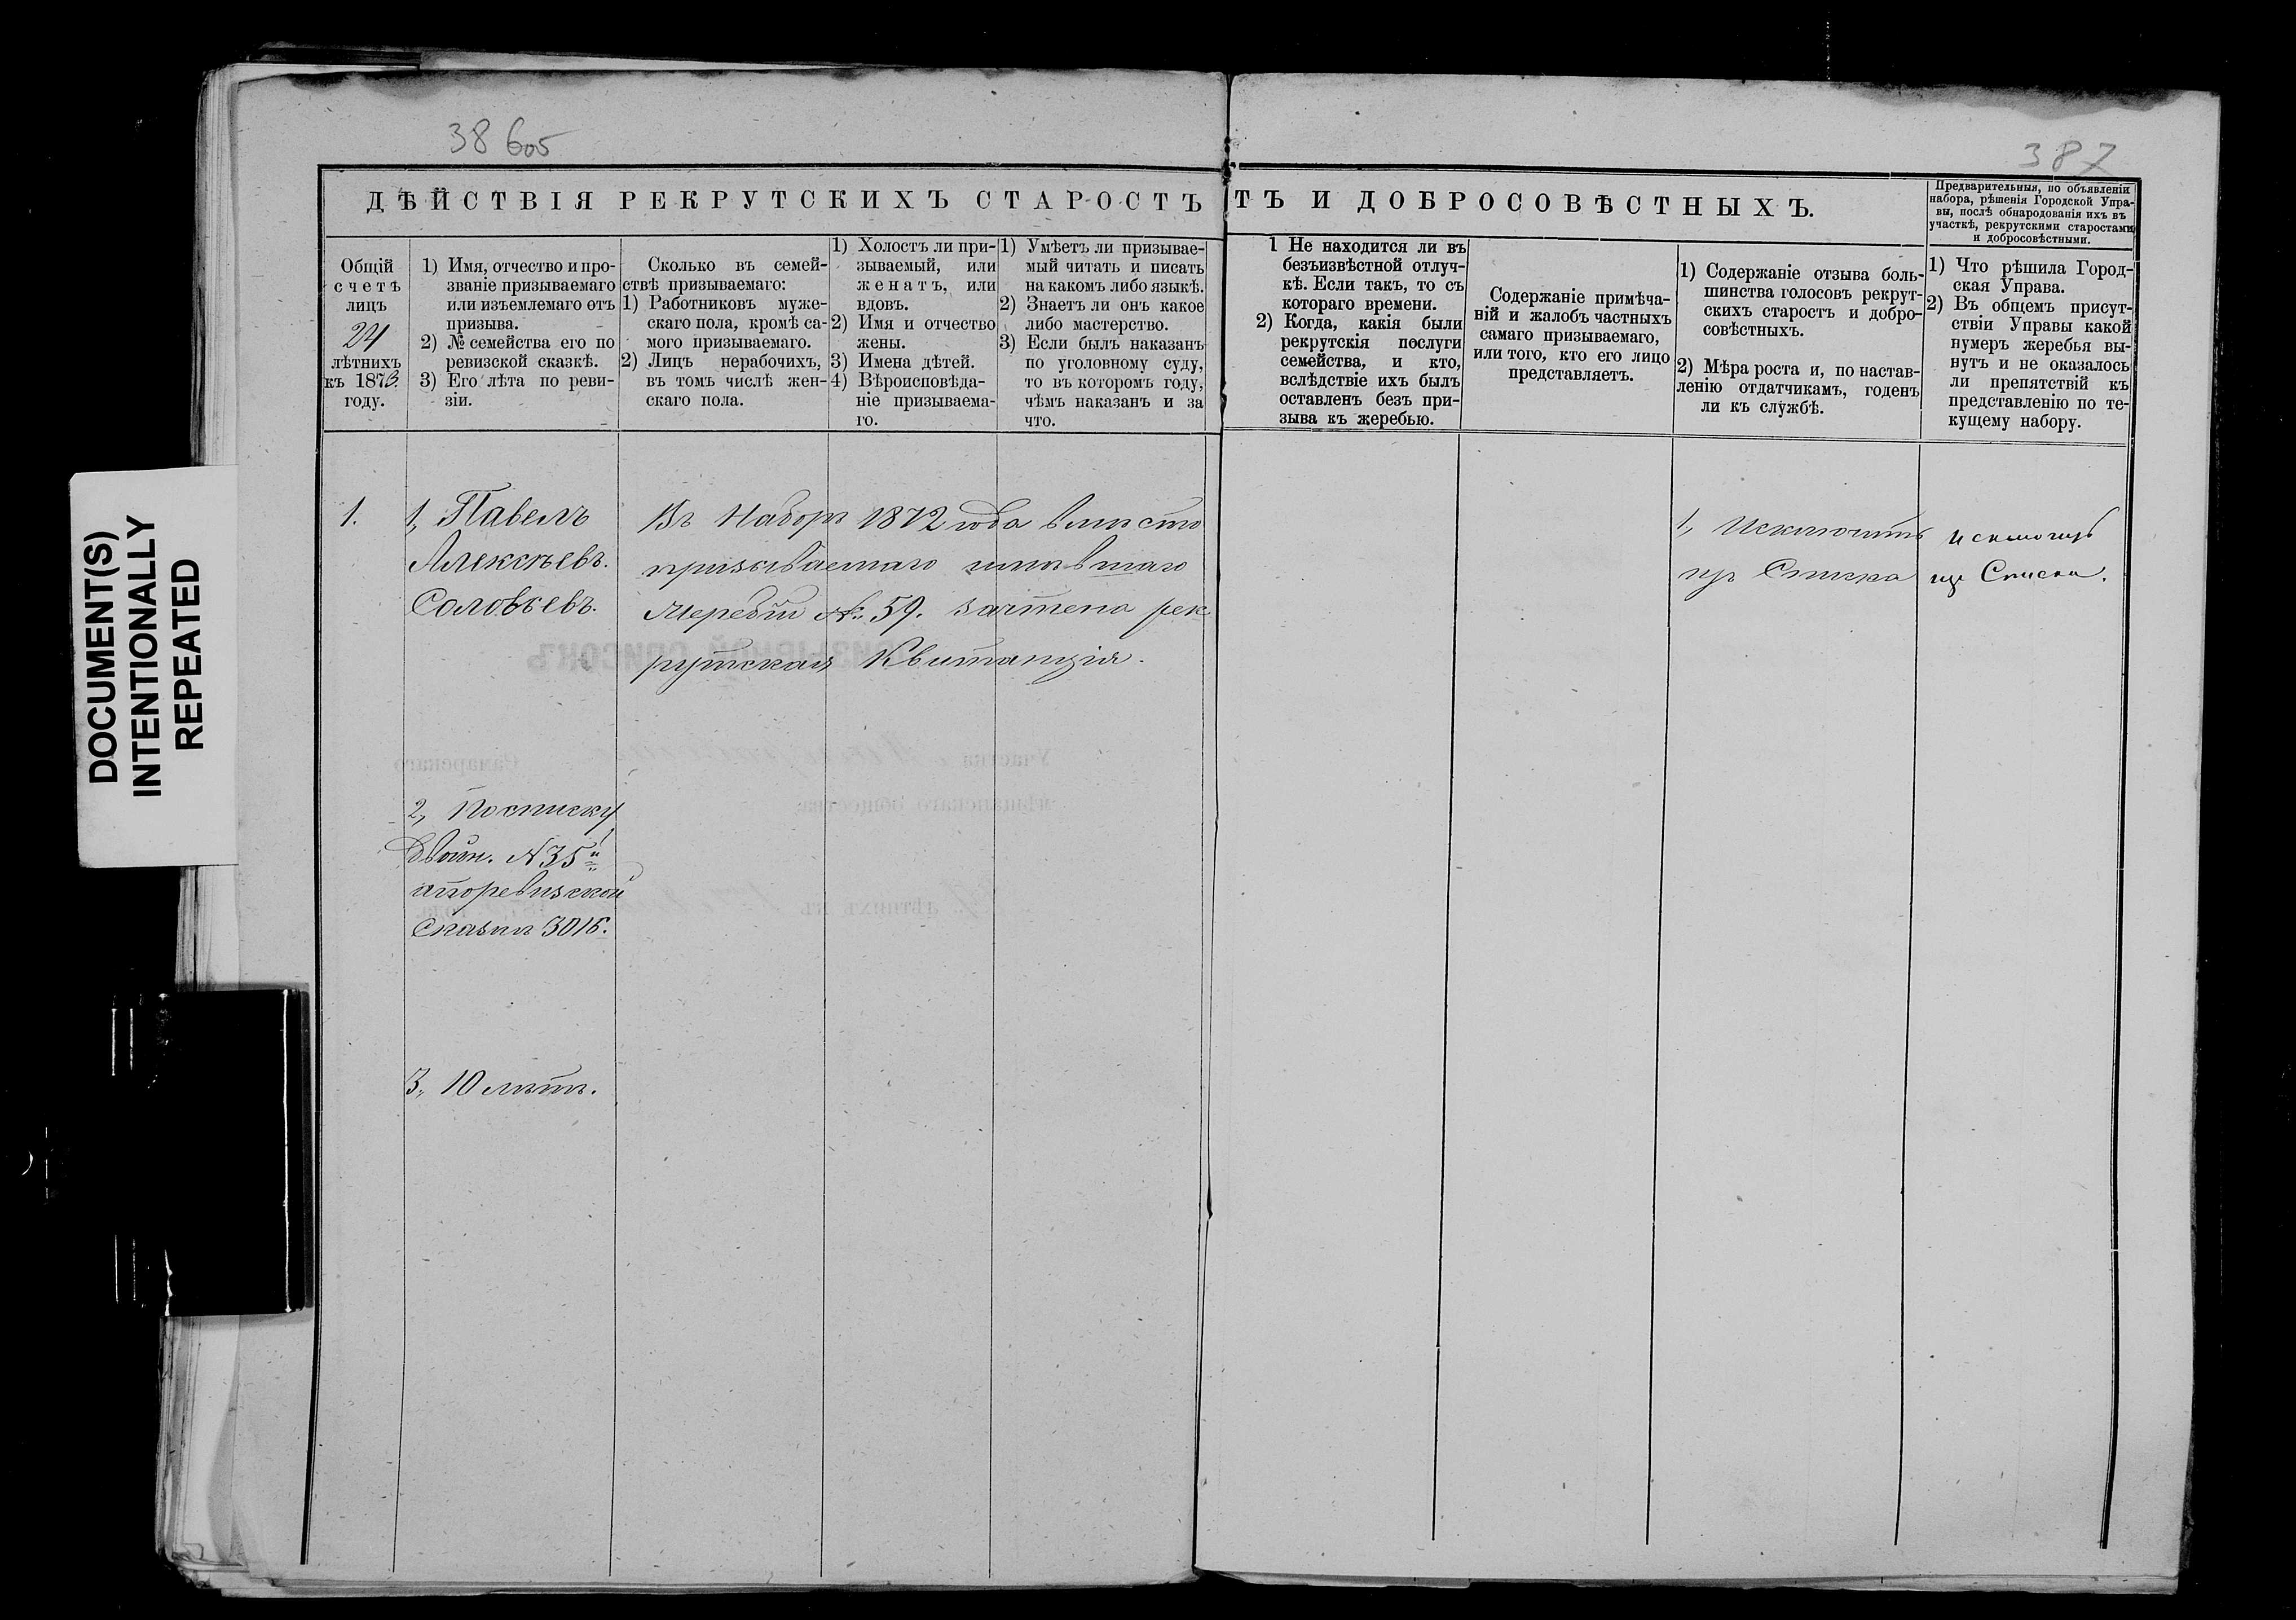 38 6об
387
ДѢЙСТВІЯ РЕКРУТСКИХЪ СТАРОСТЪ
ТЪ И ДОБРОСОВѢСТНЫХЪ.
Предварительныя, по объявленіи
набора, рѣшенія Городской Упра-
вы, послѣ обнародованія ихъ въ
участкѣ, рекрутскими старостами
и добросовѣстными.
Общій
счетъ
лицъ
24
лѣтнихъ
къ 1873
году.
1) Имя, отчество и про-
званіе призываемаго
или изъемлемаго отъ
призыва.
2) № семейства его по
ревизской сказкѣ.
3) Его лѣта по реви-
зіи.
Сколько въ семей-
ствѣ призываемаго:
1) Работниковъ муже-
скаго пола, кромѣ са-
мого призываемаго.
2) Лицъ нерабочихъ,
въ томъ числѣ жен-
скаго пола.
1) Холостъ ли при-
зываемый, или
женатъ, или
вдовъ.
2) Имя и отчество
жены.
3) Имена дѣтей.
4) Вѣроисповѣда-
ніе призываема-
го.
1) Умѣетъ ли призывае-
мый читать и писать
на какомъ либо языкѣ.
2) Знаетъ ли онъ какое
либо мастерство.
3) Если былъ наказанъ
по уголовному суду,
то въ которомъ году,
чѣмъ наказанъ и за
что.
1 Не находится ли въ
безъизвѣстной отлуч-
кѣ. Если такъ, то съ
котораго времени.
2) Когда, какія были
рекрутскія послуги
семейства, и кто,
вслѣдствіе ихъ былъ
оставленъ безъ при-
зыва къ жеребью.
Содержаніе примѣча-
ній и жалобъ частныхъ
самаго призываемаго,
или того, кто его лицо
представляетъ.
1) Содержаніе отзыва боль-
шинства голосовъ рекрут-
скихъ старостъ и добро-
совѣстныхъ.
2) Мѣра роста и, по настав-
ленію отдатчикамъ, годенъ
ли къ службѣ.
1) Что рѣшила Город-
ская Управа.
2) Въ общемъ присут-
ствіи Управы какой
нумеръ жеребья вы-
нутъ и не оказалось
ли препятствій къ
представленію по те-
кущему набору.
1.
1, Павелъ
Алексѣевъ.
Соловьевъ.
2, По списку
двойн. №35й
а по ревизской
Сказкѣ 3015.
3, 10 лѣтъ.
Въ Наборъ 1872 года вмѣсто
призываемаго имѣвшаго
жеребій № 59. зачтена рек
рутская Квитанція.
1, Исключить
изъ Списка
Исключить
изъ Списка.
DOCUMENT(S)
INTENTIONALLY
REPEATED